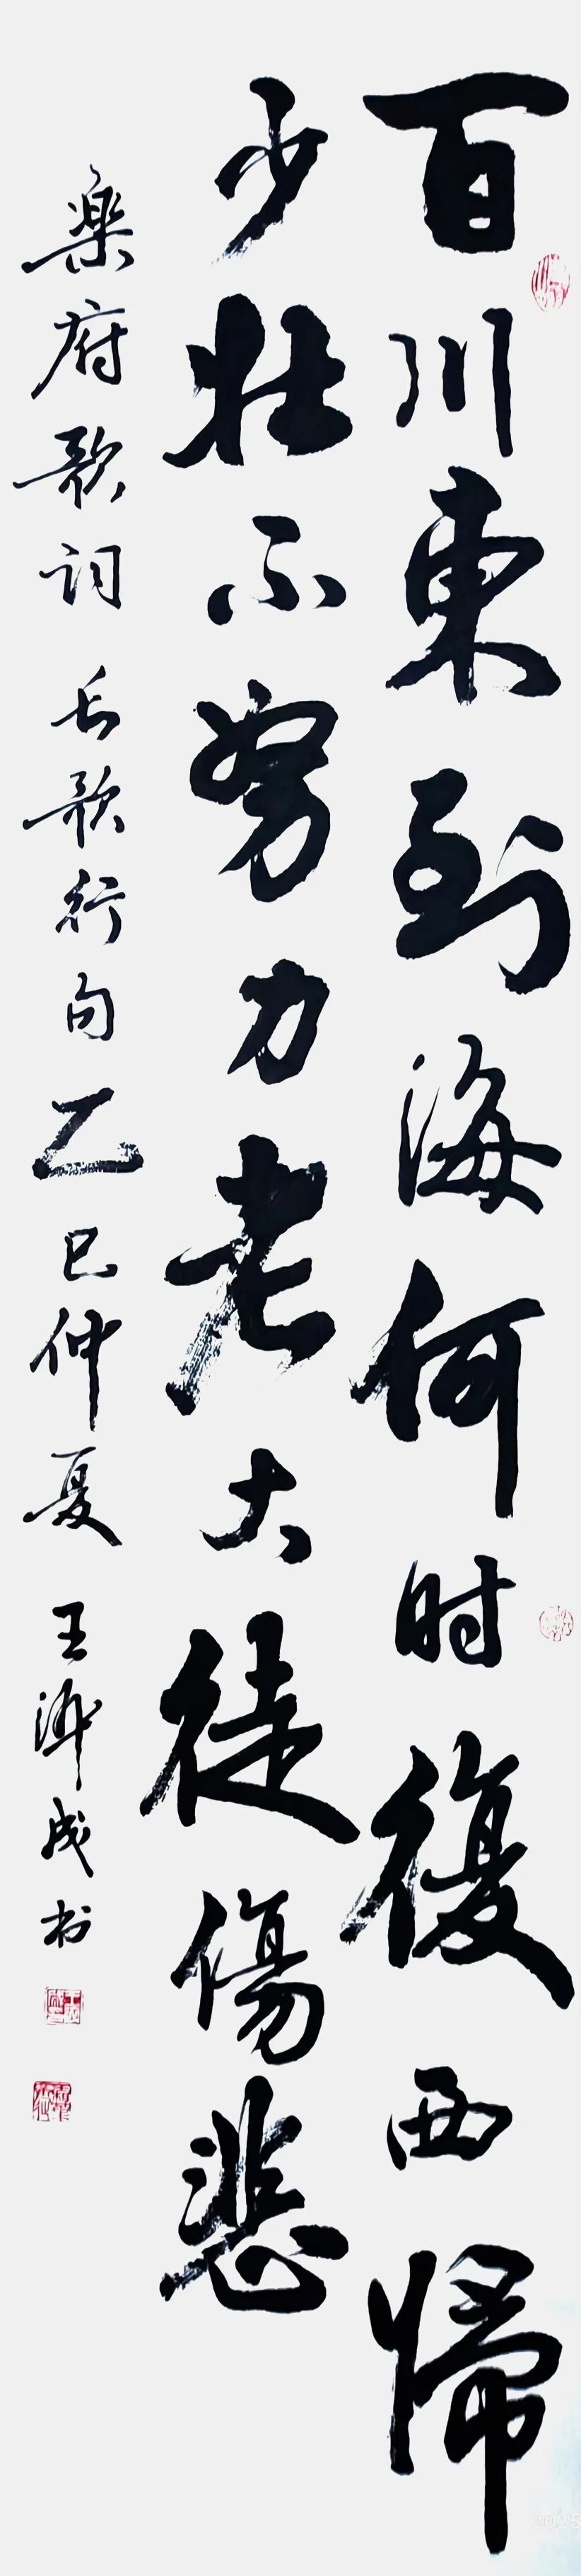 百川東到海何时復西歸
少壯不努力老大徒傷悲
樂府歌词 长歌行句 乙巳仲夏 王 成书